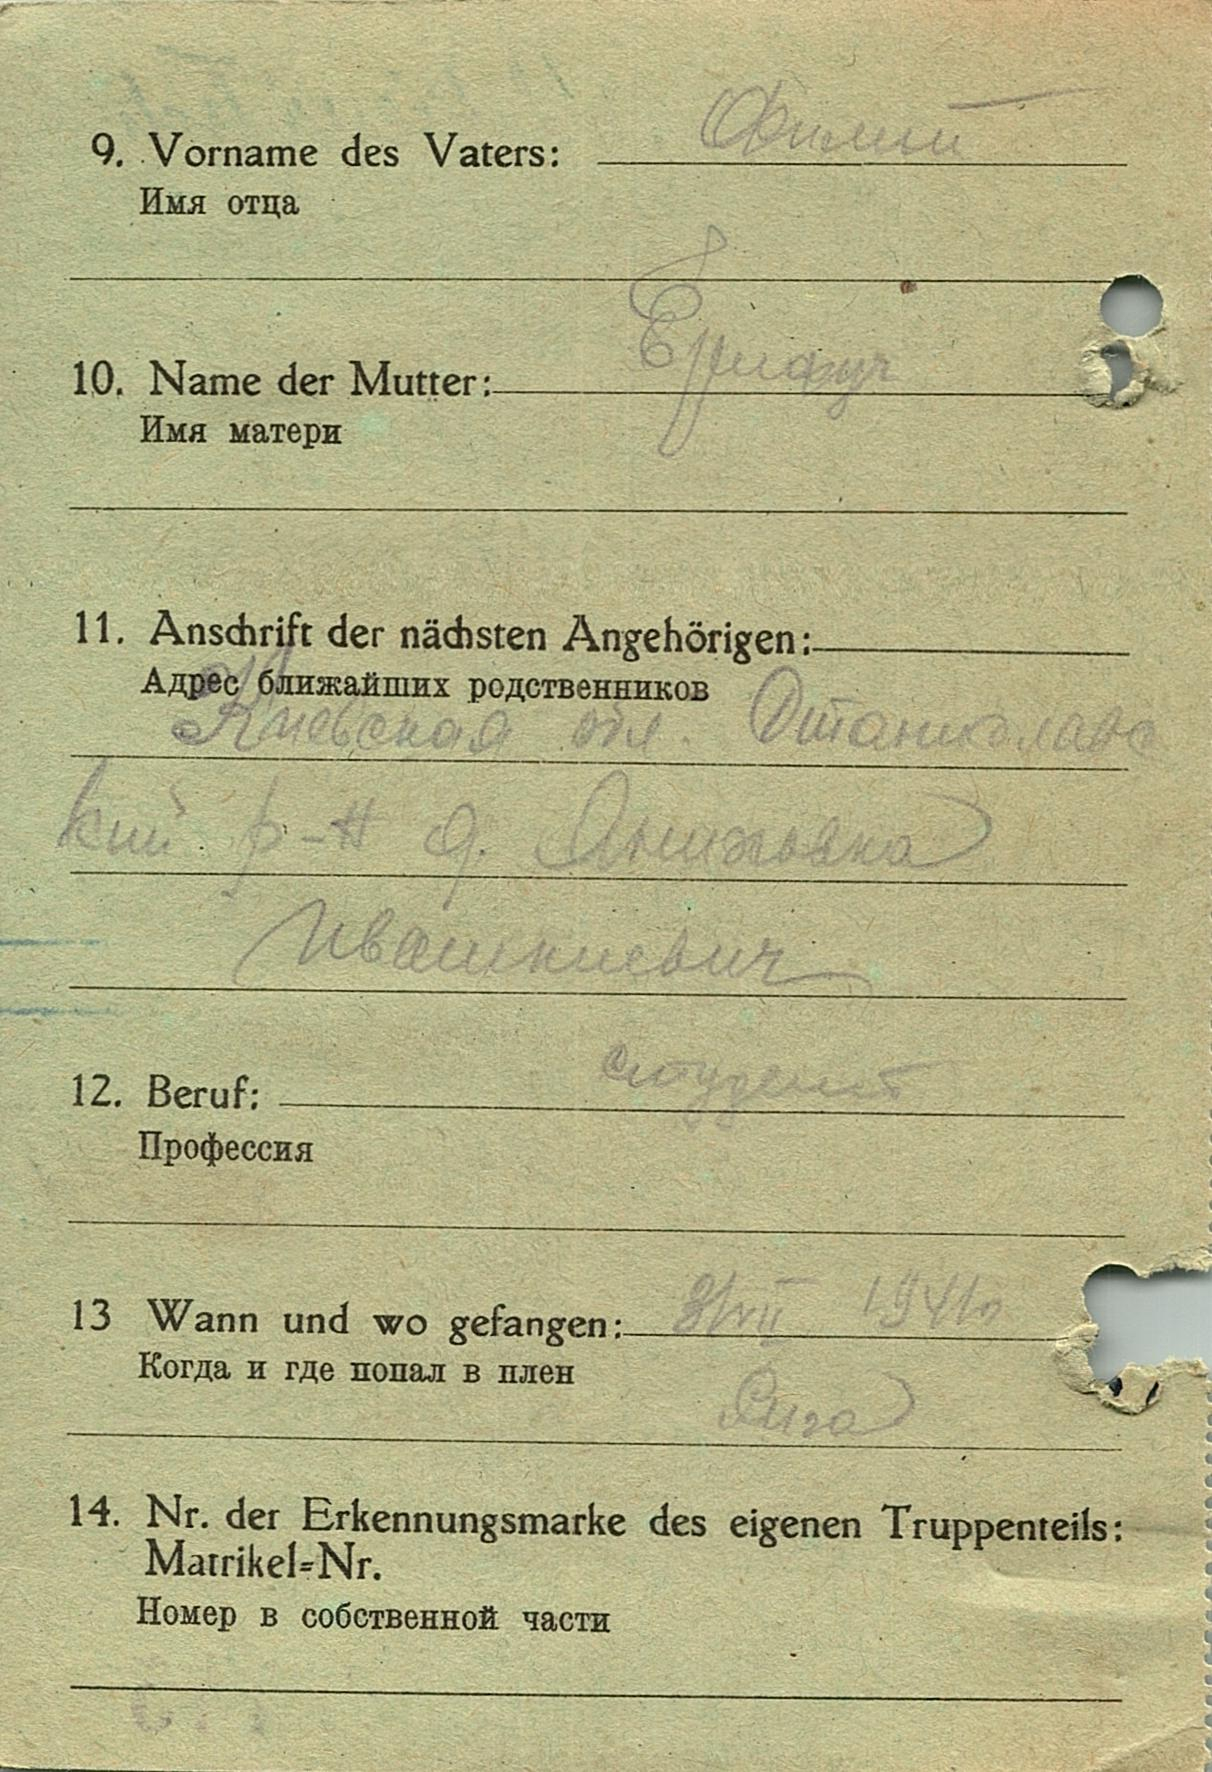 9. Vorname des Vaters: Филип
Имя отца
10. Name der Mutter:
Имя матери
11. Anschrift der nächsten Angehörigen:
Адрес ближайших родственников
Киевская обл.
кий р-н д.
Ивашкиевич
12. Beruf: студент
Профессия
13 Wann und wo gefangen: 3/VII 1941г
Когда и где попал в плен
Рига
14. Nr. der Erkennungsmarke des eigenen Truppenteils:
Matrikel=Nr.
Номер в собственной части